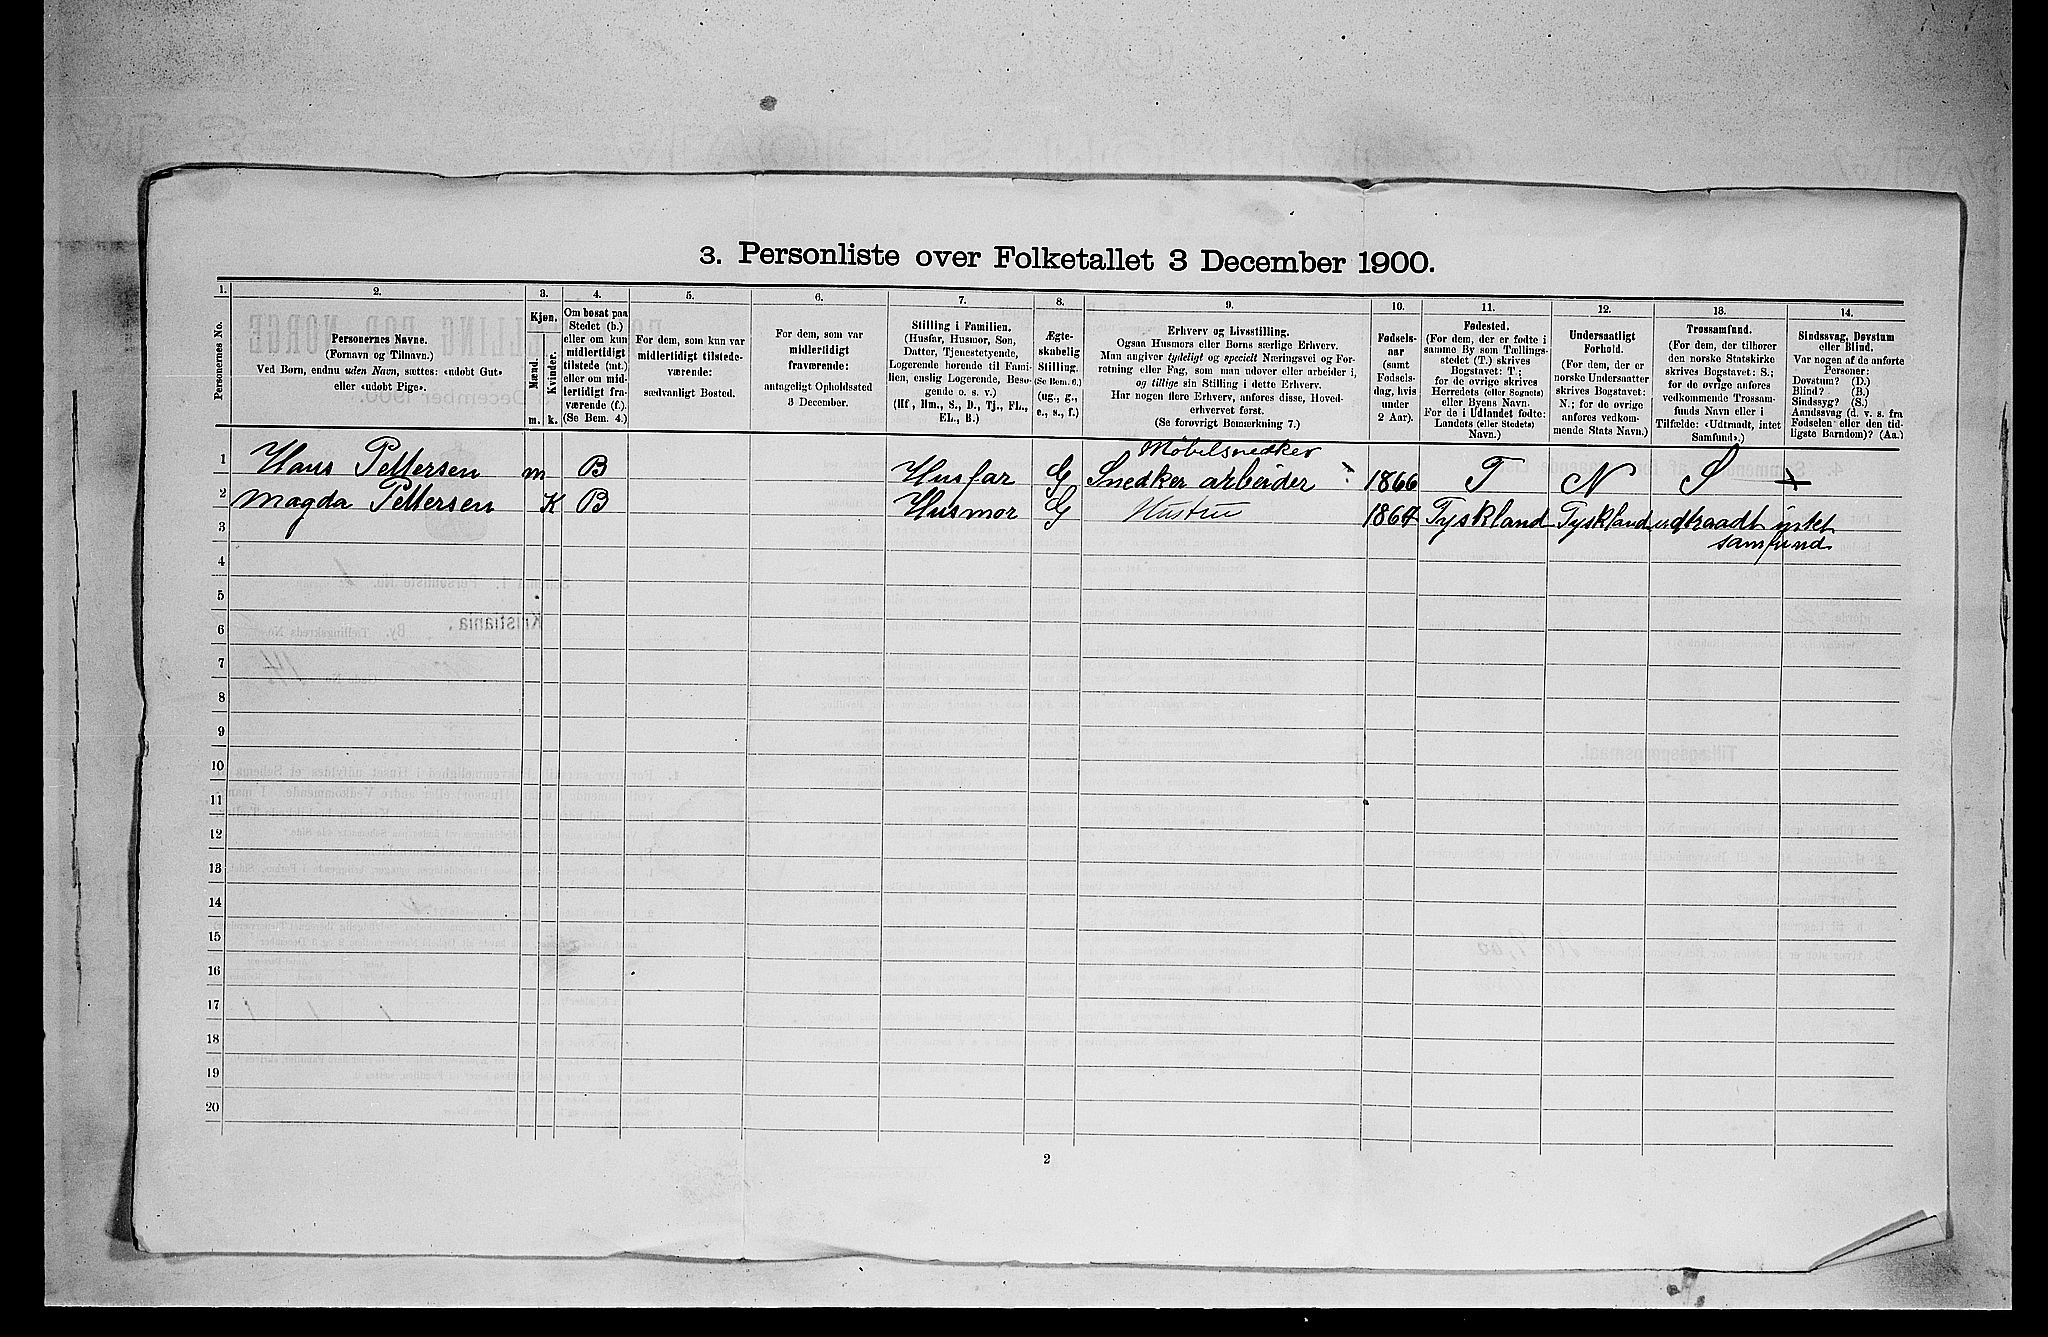 3. Personliste over Folketallet 3 December 1900.
1. 2. 3. 4. 5. 6. 7. 8. 9. 10. 11. 12. 13. 14.
Personernes No.
Personernes Navne.
(Fornavn og Tilnavn.)
Ved Børn, endnu uden Navn, sættes: «udøbt Gut»
eller «udøbt Pige».
Kjøn.
Mænd.
Kvinder.
m. k.
Om bosat paa
Stedet (b.)
eller om kun
midlertidigt
tilstede (mt.)
eller om mid-
lertidigt fra-
værende (f.).
(Se Bem. 4.)
For dem, som kun var
midlertidigt tilstede-
værende:
sædvanligt Bosted.
For dem, som var
midlertidigt
fraværende:
antageligt Opholdssted
3 December.
Stilling i Familien.
(Husfar, Husmor, Søn,
Datter, Tjenestetyende,
Logerende hørende til Fami-
lien, enslig Logerende, Besø-
gende o. s. v.)
(Hf, Hm., S., D., Tj., FL.,
EL., B.)
Ægte-
skabelig
Stilling.
(Se Bem. 6.)
(ug., g.,
e., s., f.)
Erhverv og Livsstilling.
Ogsaa Husmors eller Børns særlige Erhverv.
Man angiver tydeligt og specielt Næringsvei og For-
retning eller Fag, som man udøver eller arbeider i,
og tillige sin Stilling i dette Erhverv.
Har nogen flere Erhverv, anføres disse, Hoved-
erhvervet først.
(Se forøvrigt Bemærkning 7.)
Fødsels-
aar
(samt
Fødsels-
dag, hvis
under
2 Aar).
Fødested.
(For dem, der er fødte i
samme By som Tællings-
stedet (T.) skrives
Bogstavet: T.;
for de øvrige skrives
Herredets (eller Sognets)
eller Byens Navn.
For de i Udlandet fødte:
Landets (eller Stedets)
Navn.)
Undersaatligt
Forhold.
(For dem, der er
norske Undersaatter
skrives Bogstavet:
N.; for de øvrige
anføres vedkom-
mende Stats Navn.)
Trossamfund.
(For dem, der tilhører
den norske Statskirke
skrives Bogstavet: S.;
for de øvrige anføres
vedkommende Trossam-
funds Navn eller i
Tilfælde: «Udtraadt, intet
Samfund».)
Sindssvag, Døvstum
eller Blind.
Var nogen af de anførte
Personer:
Døvstum? (D.)
Blind? (B.)
Sindssyg? (S.)
Aandssvag (d. v. s. fra
Fødselen eller den tid-
ligste Barndom)? (Aa.)
Møbelsnedker
1 Hans Pettersen m B Husfar G Snedker arbeider 1866 T N S
2 Magda Pettersen K B Husmor G Hustru 1864 Tyskland Tyskland udtraadt intet
samfund
3
4
5
6
7
8
9
10
11
12
13
14
15
16
17
18
19
20
2